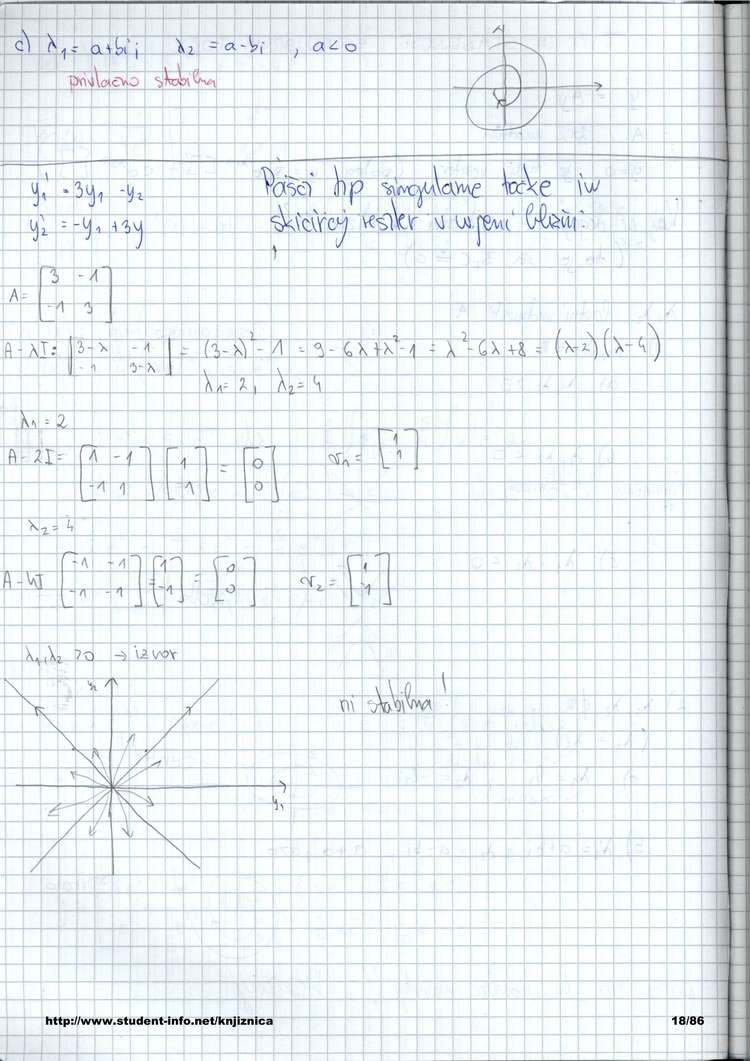 c) λ₁ = a+bi, λ₂ = a-bi , a<0
privlačno stabilna
y₁' = 3y₁ - y₂
y₂' = -y₁ + 3y
Poišči tip singularne točke in
skiciraj rešitev v njeni bližini.
A = [3 -1
-1 3]
A - λI: |3-λ -1
-1 3-λ| = (3-λ)² - 1 = 9 - 6λ + λ² - 1 = λ² - 6λ + 8 = (λ-2)(λ-4)
λ₁ = 2, λ₂ = 4
λ₁ = 2
A - 2I = [1 -1
-1 1] [1
1] = [0
0] v₁ = [1
1]
λ₂ = 4
A - 4I [-1 -1
-1 -1] [1
-1] = [0
0] v₂ = [1
-1]
λ₁, λ₂ > 0 → izvor
y₂
ni stabilna!
y₁
http://www.student-info.net/knjiznica 18/86